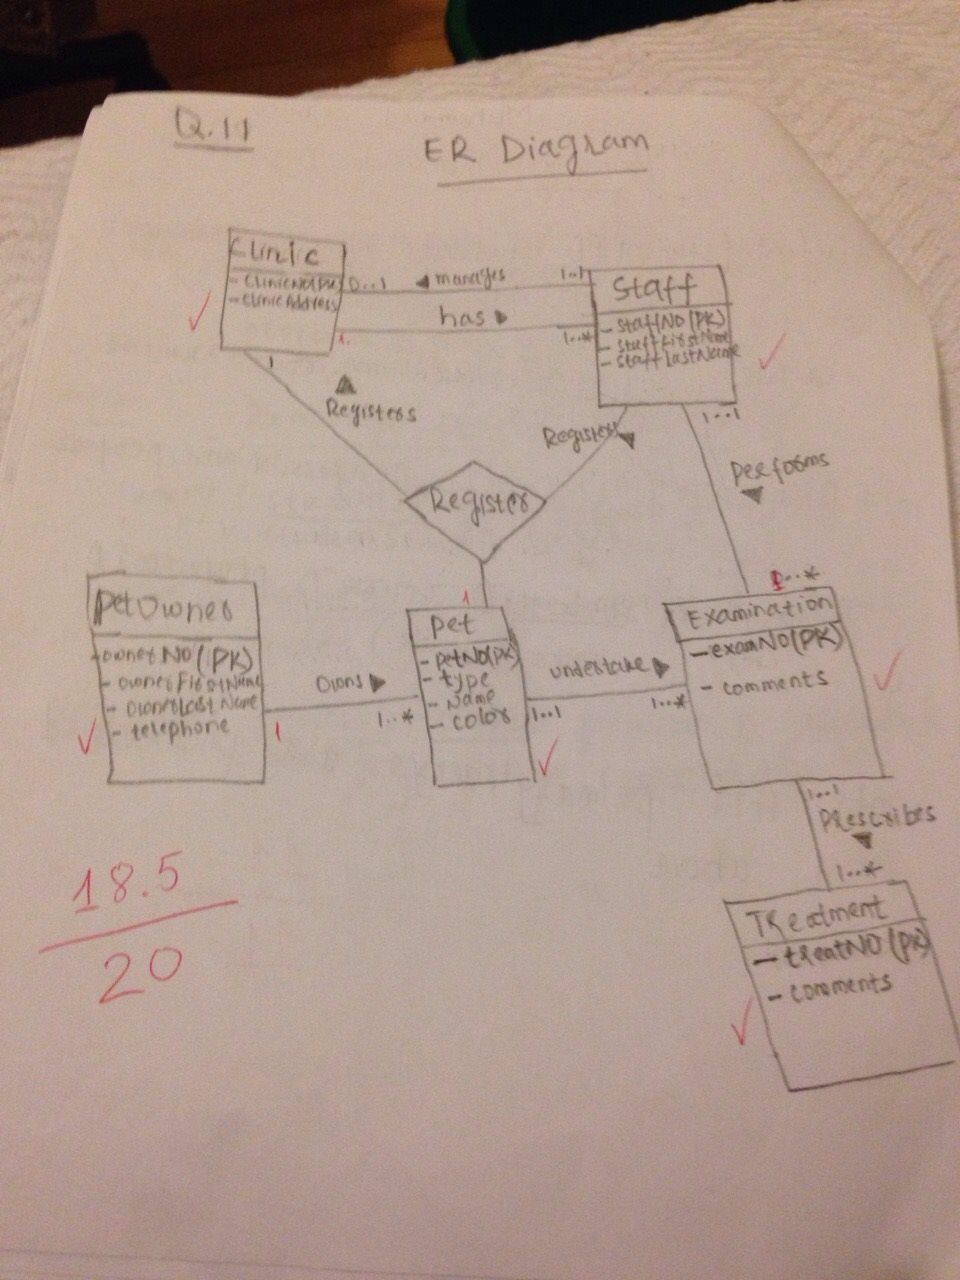 Q.11
ER Diagram
Clinic
- ClinicNo(PK)
- ClinicAddress
0..1
manages
1..1
has
1.
1..*
Staff
- staffNO(PK)
- staffFirstName
- staffLastName
1
Registers
Registers
1..1
Performs
Register
1
*
PetOwner
- ownerNO(PK)
- ownerFirstName
- ownerLastName
- telephone
Owns
1
1..*
Pet
- petNO(PK)
- type
- Name
- color
undertake
1..1
1..*
Examination
- examNO(PK)
- comments
1..1
Prescribes
1..*
Treatment
- treatNO(PK)
- comments
18.5
20